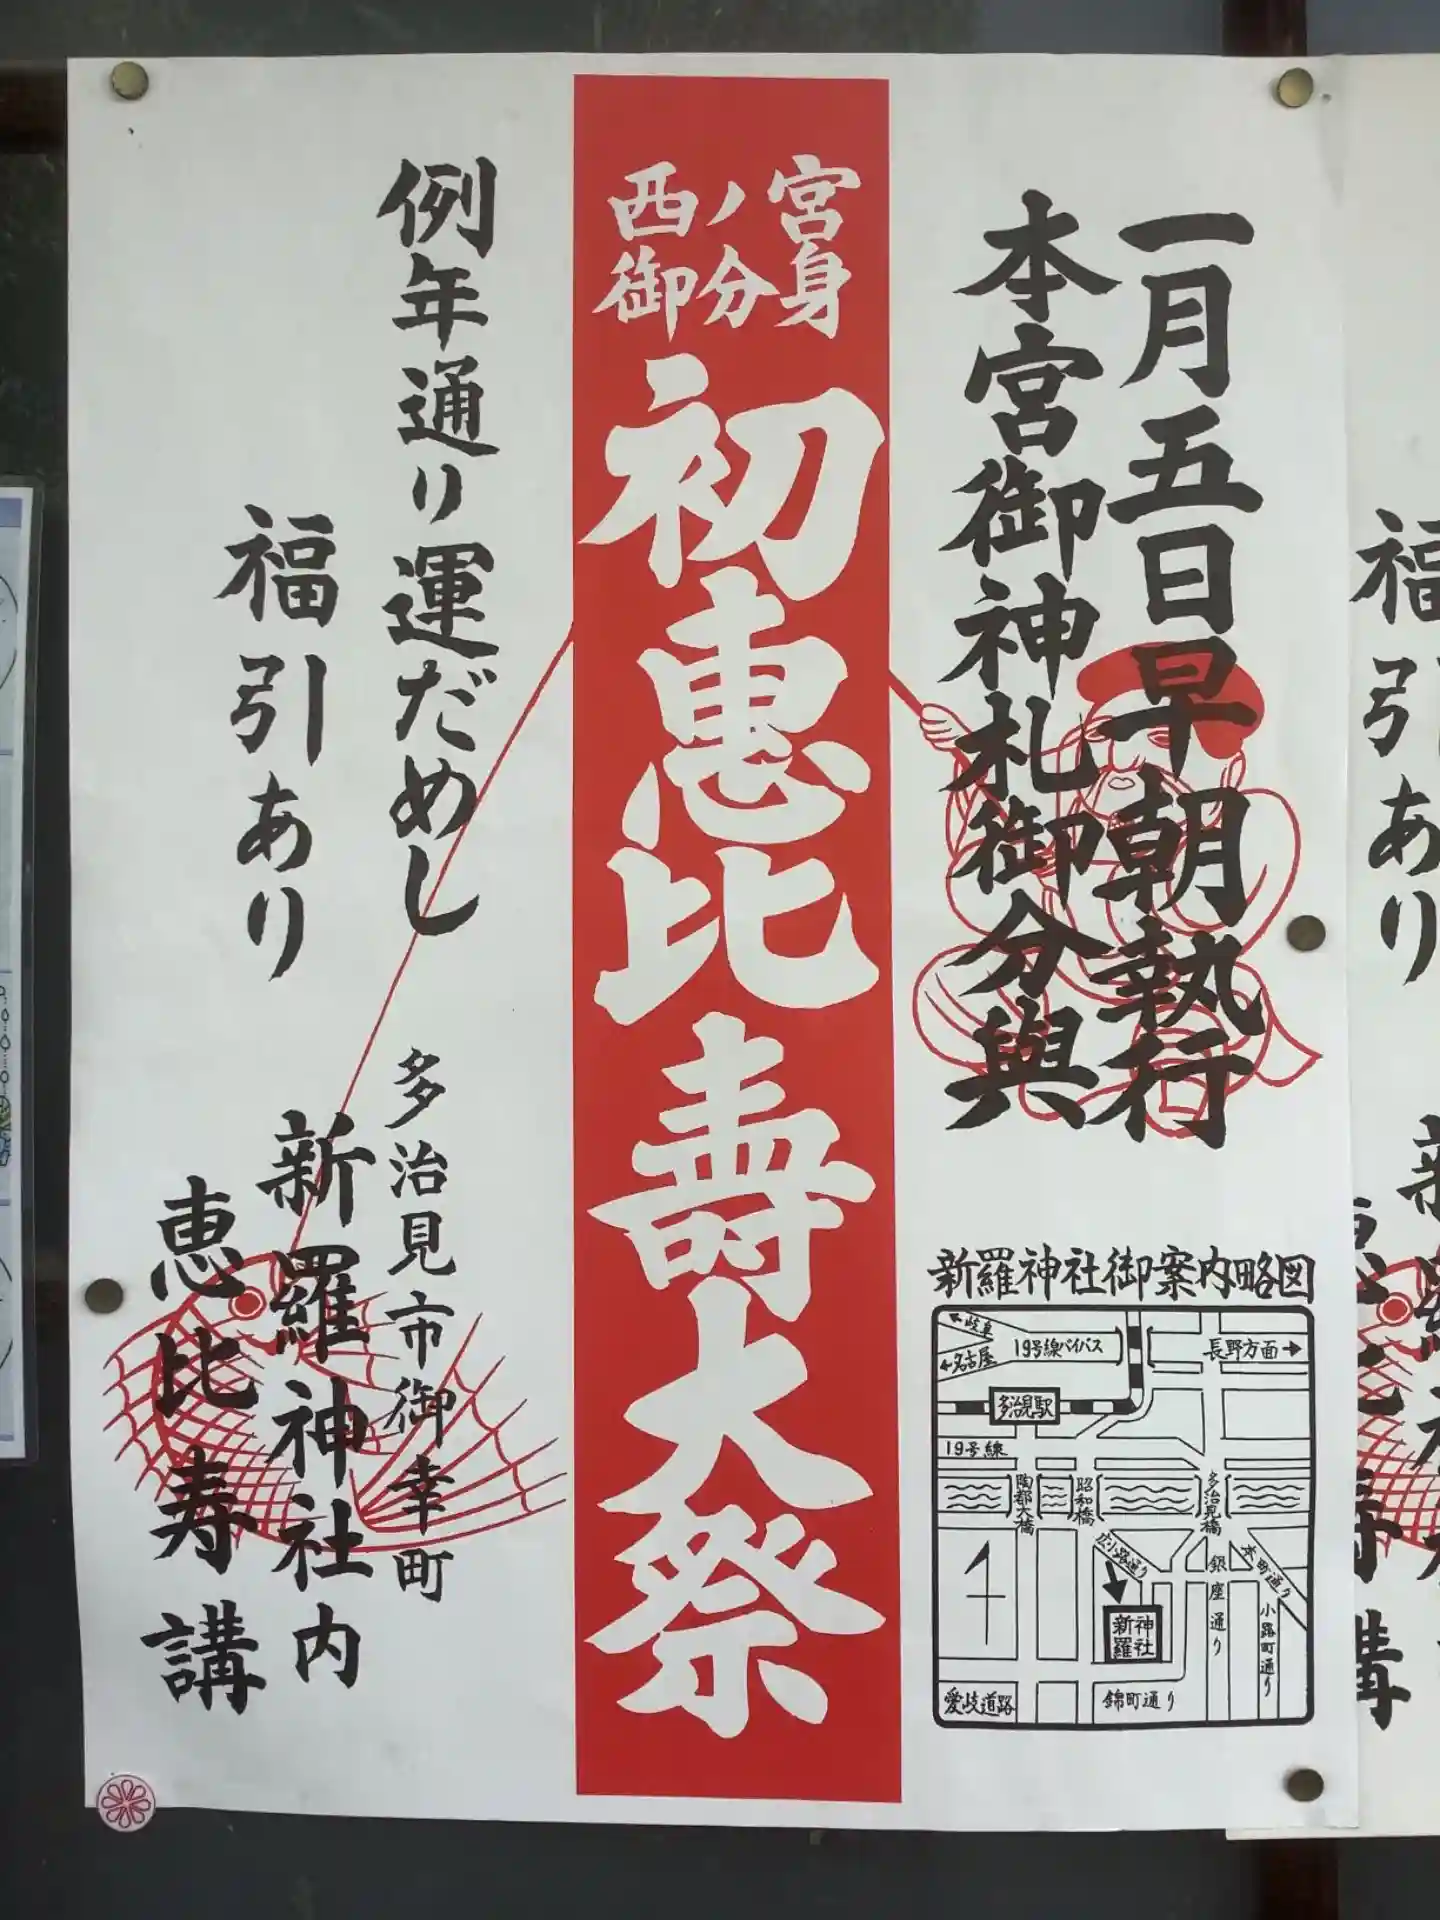 一月五日早朝執行
本宮御神札御分與
西ノ宮
御分身
初恵比寿大祭
例年通り運だめし
福引あり
多治見市御幸町
新羅神社内
恵比寿講
新羅神社御案内略図
岐阜
名古屋
19号線バイパス
長野方面
多治見駅
19号線
陶都大橋
昭和橋
多治見橋
広小路通り
銀座通り
本町通り
小路町通り
新羅神社
愛岐道路
錦町通り
福引あり